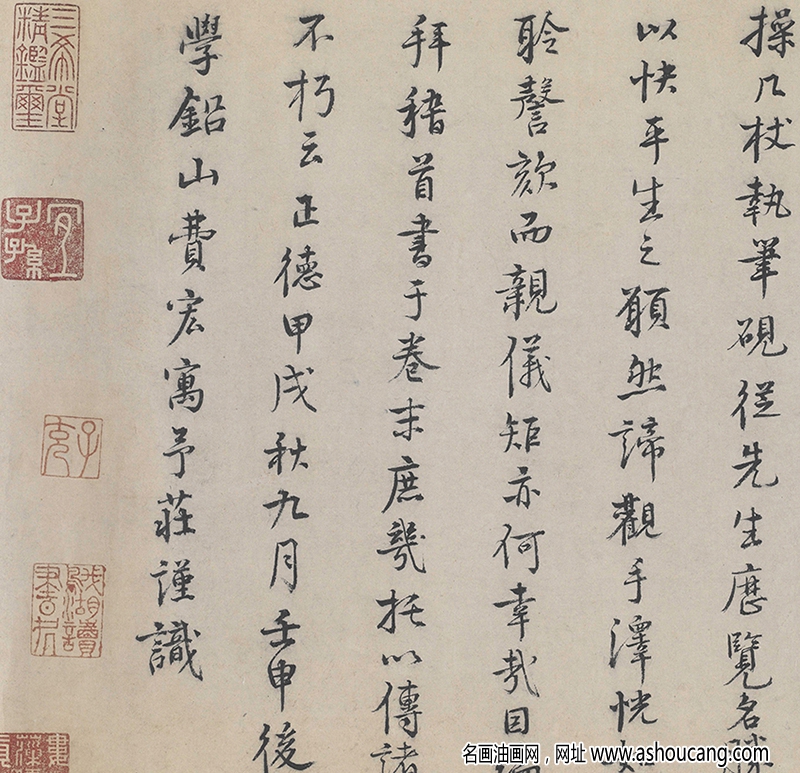 操几杖執筆硯從先生歷覽名
以快平生之願然諦觀手澤恍
聆謦欬而親儀矩亦何幸哉因
拜稽首書于卷末庶幾托以傳諸
不朽云正德甲戌秋九月壬申後
學鉛山費宏寓予莊謹識
三希堂精鑑璽
宜子孫
子充
鵝湖讀書
名画油画网，网址 www.ashoucang.com